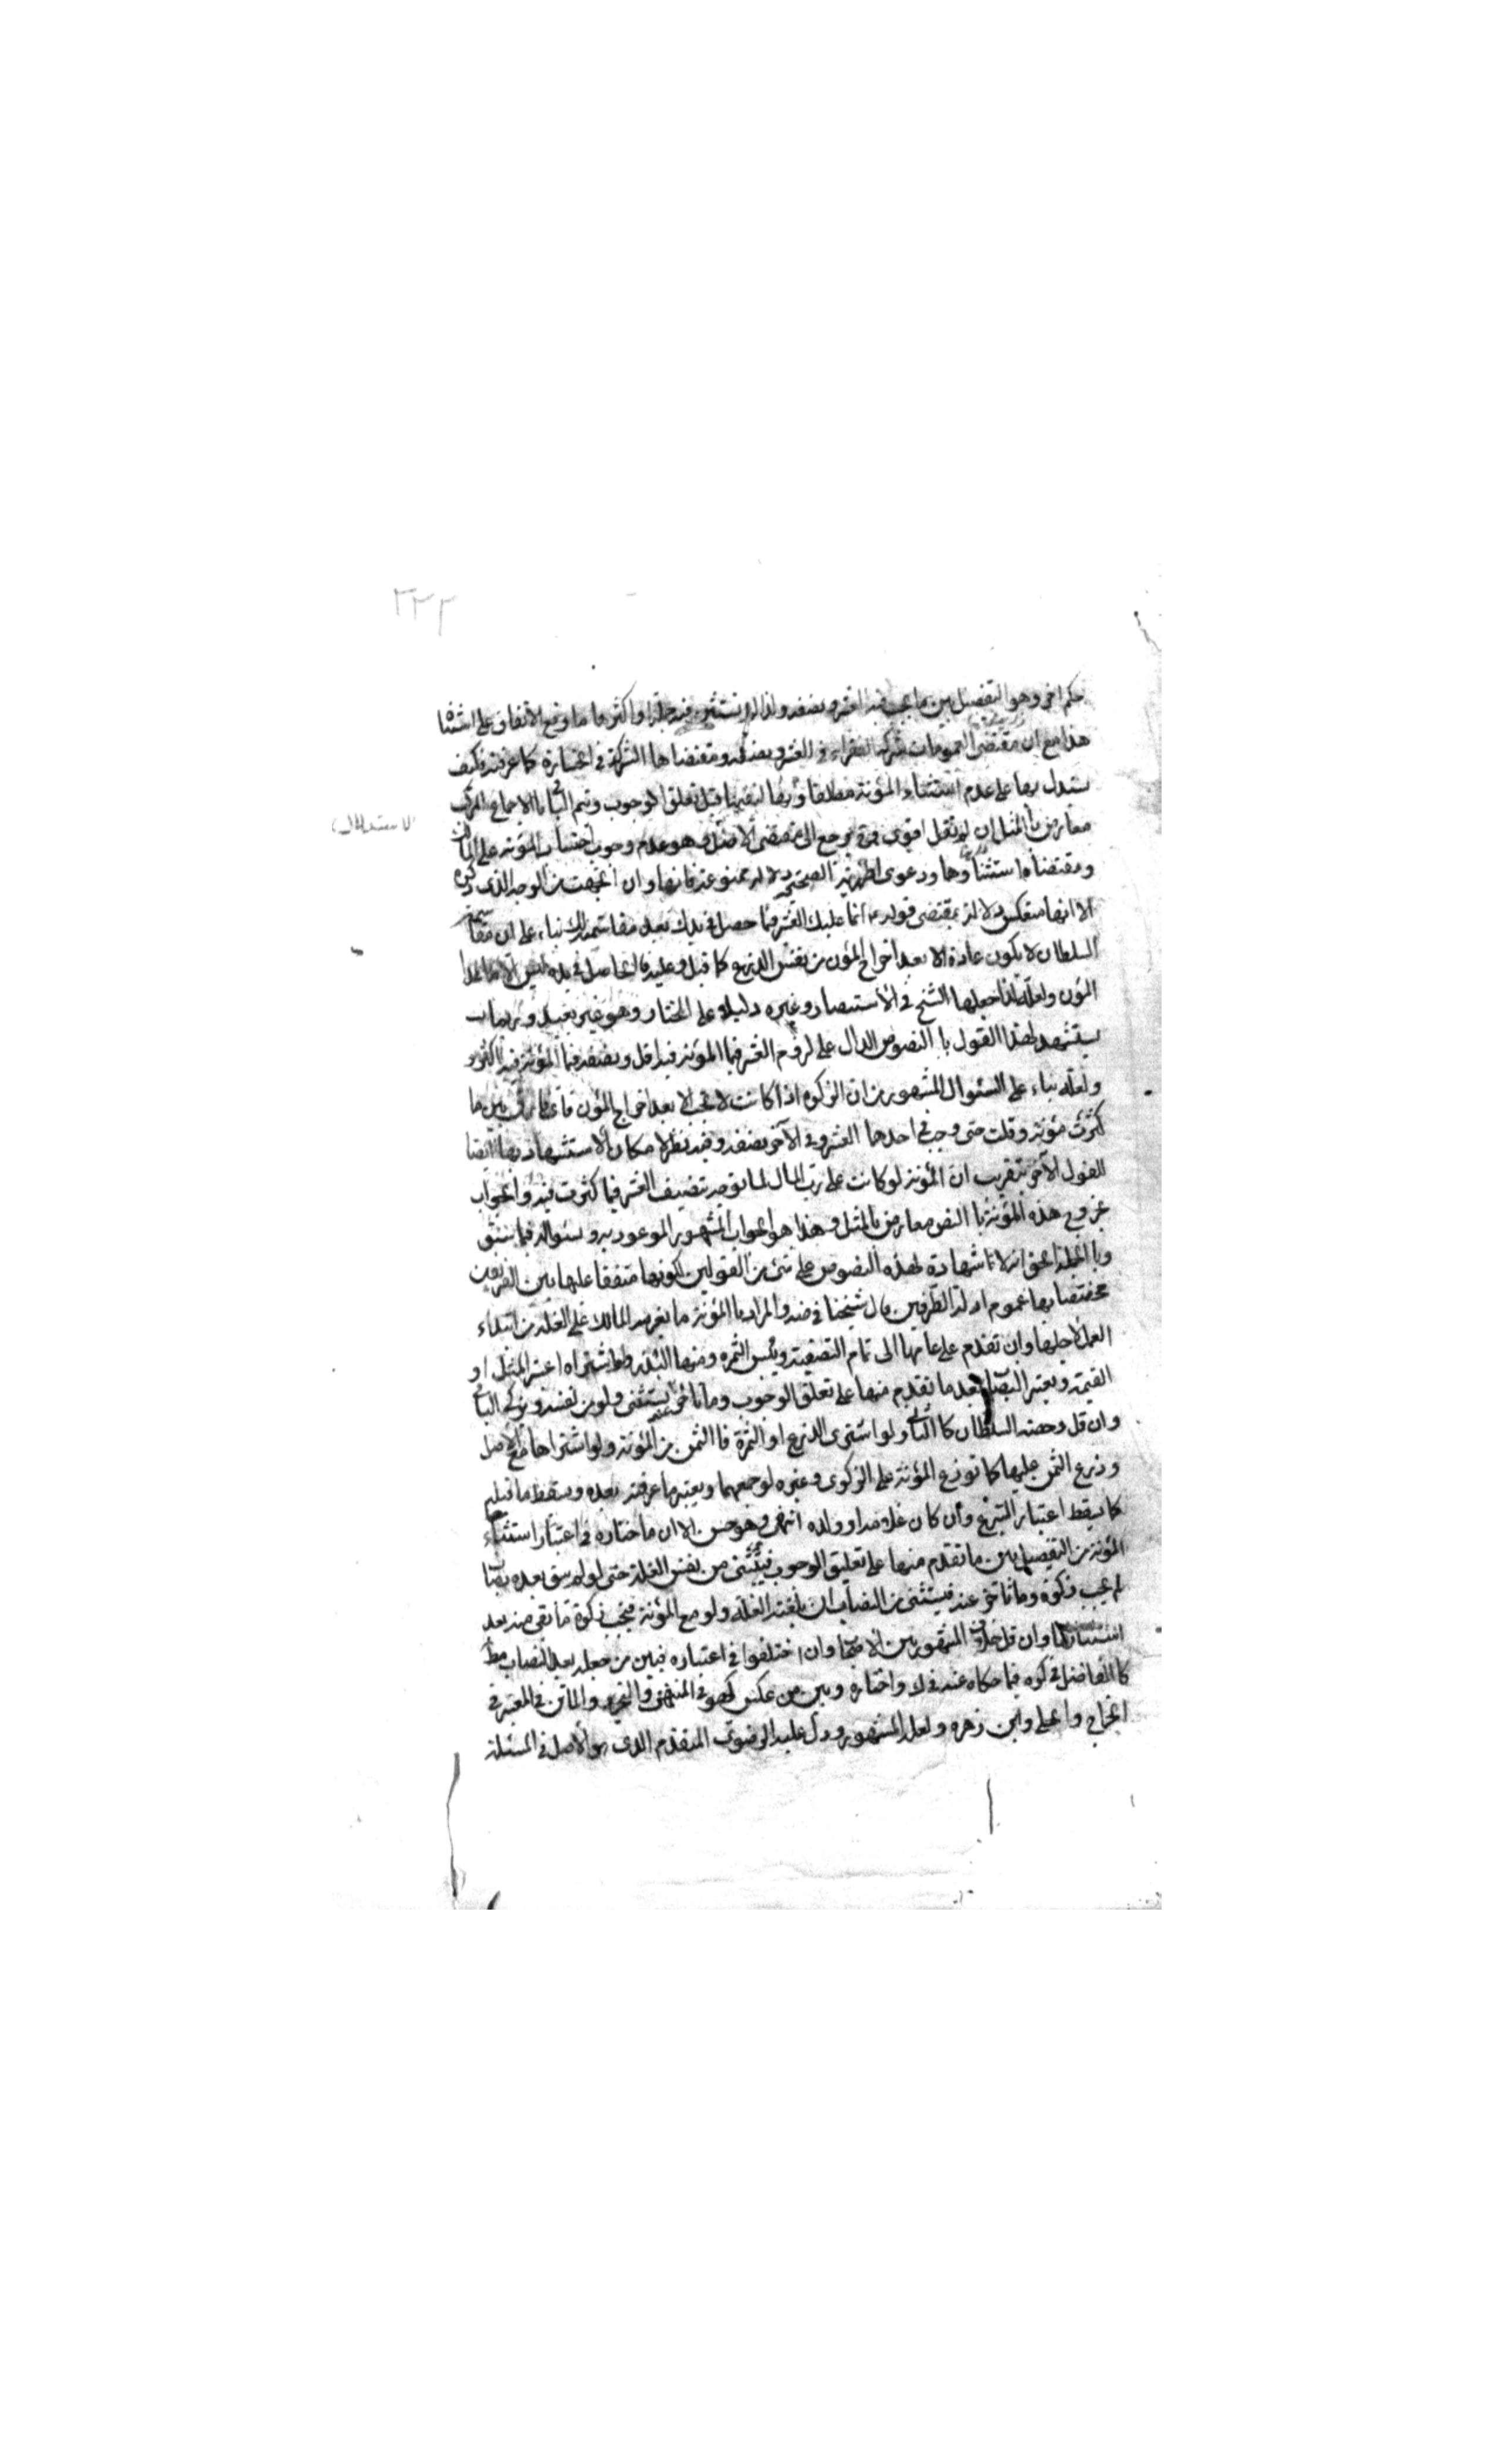 ٣٢٢
حكم اخر وهو التفصيل بين ما يجب فيه العشر ونصفه ولذا لم يستثن فيه جملة او اكثرها ما وقع الاتفاق على استثنا
هذا مع ان مقتضى العمومات شركة الفقراء في العشر ونصفه ومقتضاها الشركة في الخسارة كما عرفته فكيف
يستدل بها على عدم استثناء المؤنة مطلقا وربما قبل تعلق الوجوب ويتم الباقي بالاجماع المركب
الاستدلال
معارض بالمثل ان لم نقل اقوى فيرجع الى مقتضى الاصل وهو عدم وجوب احتساب المؤنة على المالك
ومقتضاه استثناؤها ودعوى اظهرية الصحيح دلالة ممنوعة فانها وان اتجهت من الوجه الذي ذكره
الا انها منعكس دلالة بمقتضى قوله ع انما عليك العشر فيما حصل في يدك بعد مقاسمته لك بناء على ان مقاسمة
السلطان لا يكون عادة الا بعد اخراج المؤن من نفس الزرع كما قيل وعليه فالحاصل في يده ليس الا ما عدا
المؤن ولعله لذا جعلها الشيخ في الاستبصار وغيره دليلا على المختار وهو غير بعيد وربما
يستشهد لهذا القول با النصوص الدال على لزوم العشر فيما المؤنة فيه اقل ونصفه فيما المؤنة فيه اكثر
ولعله بناء على السئوال المشهور من ان الزكوة اذا كانت لا تجب الا بعد اخراج المؤن فاي فارق بين ما
كثرت مؤنته وقلت حتى وجب في احدهما العشر وفي الآخر نصفه وفيه نظر لامكان الاستشهاد بها ايضا
للقول الآخر بتقريب ان المؤنة لو كانت على رب المال لما توجه تنصيف العشر فيما كثرت فيه والجواب
بخروج هذه المؤنة با النص معارض بالمثل وهذا هو الجواب المشهور الموعود به وسئواله فيما سبق
وبا الجملة الحق انه لا شهادة لهذه النصوص على شئ من القولين لكونها متفقا عليها بين الفريقين
مخصصا بها عموم ادلة الطرفين قال شيخنا في ضه والمراد با المؤنة ما يغرمه المالك على الغلة من ابتداء
العمل لاجلها وان تقدم على عامها الى تمام التصفية ويبس الثمرة ومنها البذر ولو اشتراه اعتبر المثل او
القيمة ويعتبر النصاب بعد ما تقدم منها على تعلق الوجوب وما تاخر عنه يستثنى ولو من نفسه ويزكى الباقي
وان قل وحصة السلطان كا الثاني ولو اشترى الزرع او الثمرة فا الثمن من المؤنة ولو اشتراها مع الاصل
وزع الثمن عليها كما توزع المؤنة على الزكوي وغيره لو جمعهما ويعتبر ما غرمه بعده ويسقط ما قبله
كما يسقط اعتبار المتبرع وان كان غلامه او ولده انتهى وهو حسن الا ان ما اختاره في اعتبار استثناء
المؤنة من التفصيل بين ما تقدم منها على تعليق الوجوب فيستثنى من نفس الغلة حتى لو لم يبق بعده نصاب
لم يجب زكوة وما تاخر عنه فيستثنى من النصاب ان بلغته الغلة ولو مع المؤنة فيجب زكوة ما بقي منه بعد
استثنائها وان قل خلاف المشهور بين الاصحاب وان اختلفوا في اعتباره فبين من جعله بعد النصاب مط
كا الفاضل في كره فيما حكاه عنه في لك واختاره وبين من عكس كهو في المنتهى والتحرير والماتن في المعتبر في
الخراج والحلي وابن زهره ولعله المشهور ودل عليه الرضوي المتقدم الذي هو الاصل في المسئلة